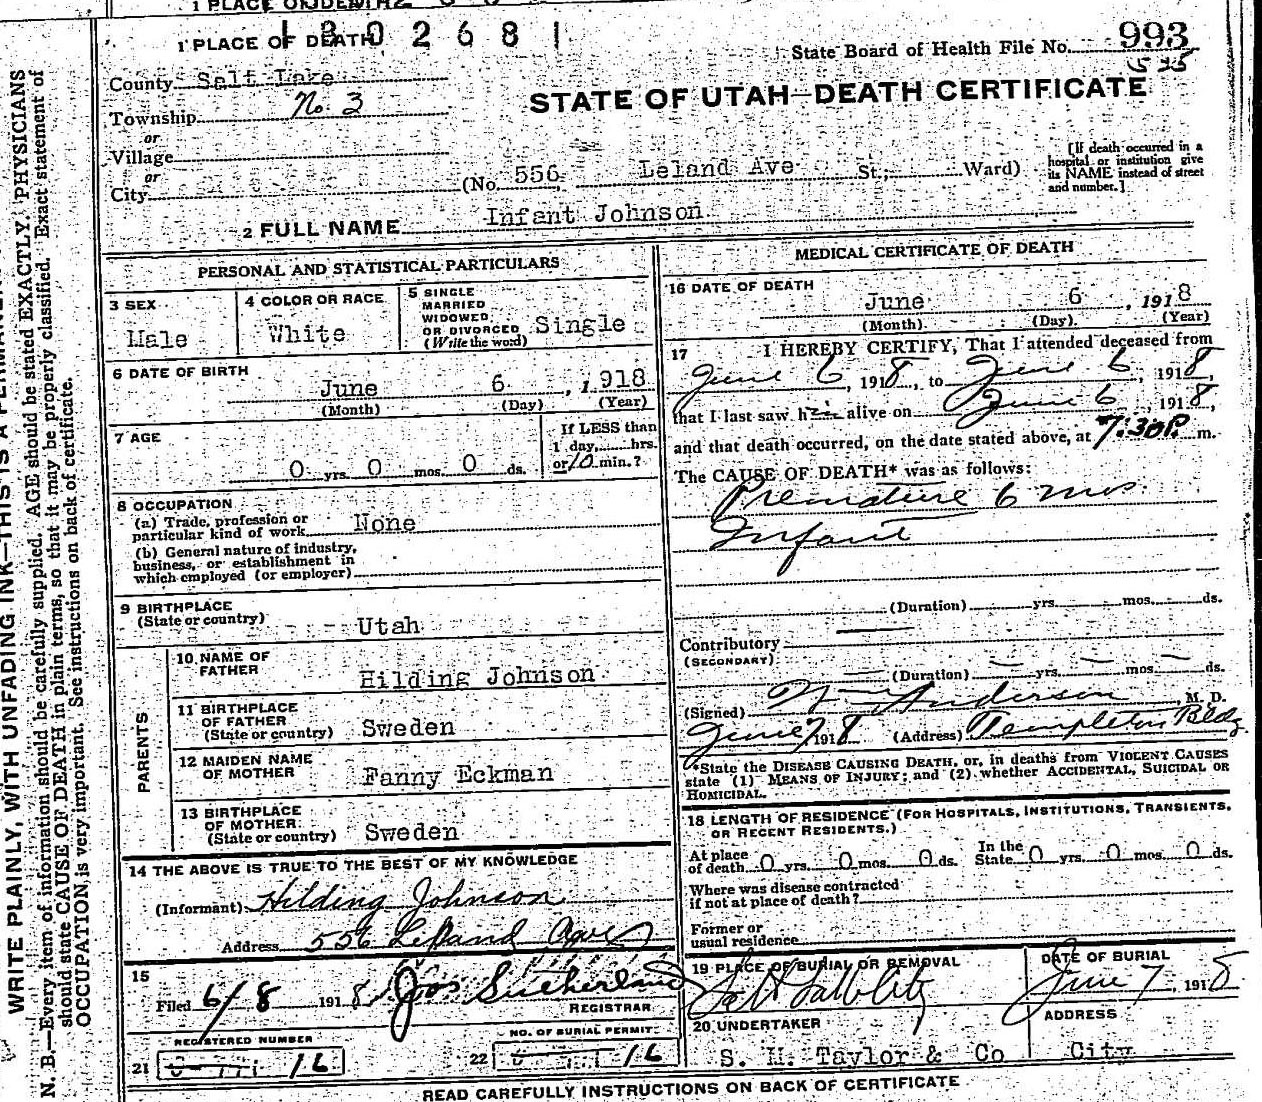 1 PLACE OF DEATH
1302681
State Board of Health File No. 993
County Salt Lake
STATE OF UTAH—DEATH CERTIFICATE
Township No. 3
or
Village
or
City
(No. 556 Leland Ave St.; Ward)
[If death occurred in a hospital or institution give its NAME instead of street and number.]
2 FULL NAME Infant Johnson
PERSONAL AND STATISTICAL PARTICULARS
3 SEX
Male
4 COLOR OR RACE
White
5 SINGLE
MARRIED
WIDOWED
OR DIVORCED
(Write the word)
Single
6 DATE OF BIRTH
June 6, 1918
(Month) (Day) (Year)
7 AGE
0 yrs. 0 mos. 0 ds.
If LESS than
1 day, hrs.
or 10 min.?
8 OCCUPATION
(a) Trade, profession or
particular kind of work None
(b) General nature of industry,
business, or establishment in
which employed (or employer)
9 BIRTHPLACE
(State or country) Utah
PARENTS
10 NAME OF
FATHER Hilding Johnson
11 BIRTHPLACE
OF FATHER
(State or country) Sweden
12 MAIDEN NAME
OF MOTHER Fanny Eckman
13 BIRTHPLACE
OF MOTHER
(State or country) Sweden
14 THE ABOVE IS TRUE TO THE BEST OF MY KNOWLEDGE
(Informant) Hilding Johnson
Address 556 Leland Ave
15
Filed 6/8 1918 Jos Sutherland
REGISTRAR
REGISTERED NUMBER
21 16
NO. OF BURIAL PERMIT
22 16
MEDICAL CERTIFICATE OF DEATH
16 DATE OF DEATH
June 6, 1918
(Month) (Day) (Year)
17 I HEREBY CERTIFY, That I attended deceased from
June 6, 1918, to June 6, 1918,
that I last saw him alive on June 6, 1918,
and that death occurred, on the date stated above, at 7:30 P. m.
The CAUSE OF DEATH* was as follows:
Premature 6 mos.
Infant
(Duration) yrs. mos. ds.
Contributory
(SECONDARY)
(Duration) yrs. mos. ds.
(Signed) Anderson, M. D.
June 7 1918 (Address) Templeton Bldg.
*State the DISEASE CAUSING DEATH, or, in deaths from VIOLENT CAUSES
state (1) MEANS OF INJURY; and (2) whether ACCIDENTAL, SUICIDAL OR
HOMICIDAL.
18 LENGTH OF RESIDENCE (FOR HOSPITALS, INSTITUTIONS, TRANSIENTS,
OR RECENT RESIDENTS.)
At place
of death 0 yrs. 0 mos. 0 ds.
In the
State 0 yrs. 0 mos. 0 ds.
Where was disease contracted
if not at place of death?
Former or
usual residence
19 PLACE OF BURIAL OR REMOVAL
DATE OF BURIAL
June 7, 1918
20 UNDERTAKER
S. M. Taylor & Co
ADDRESS
City
READ CAREFULLY INSTRUCTIONS ON BACK OF CERTIFICATE
WRITE PLAINLY, WITH UNFADING INK—THIS IS A
N. B.—Every item of information should be carefully supplied. AGE should be stated EXACTLY. PHYSICIANS
should state CAUSE OF DEATH in plain terms, so that it may be properly classified. Exact statement of
OCCUPATION is very important. See instructions on back of certificate.